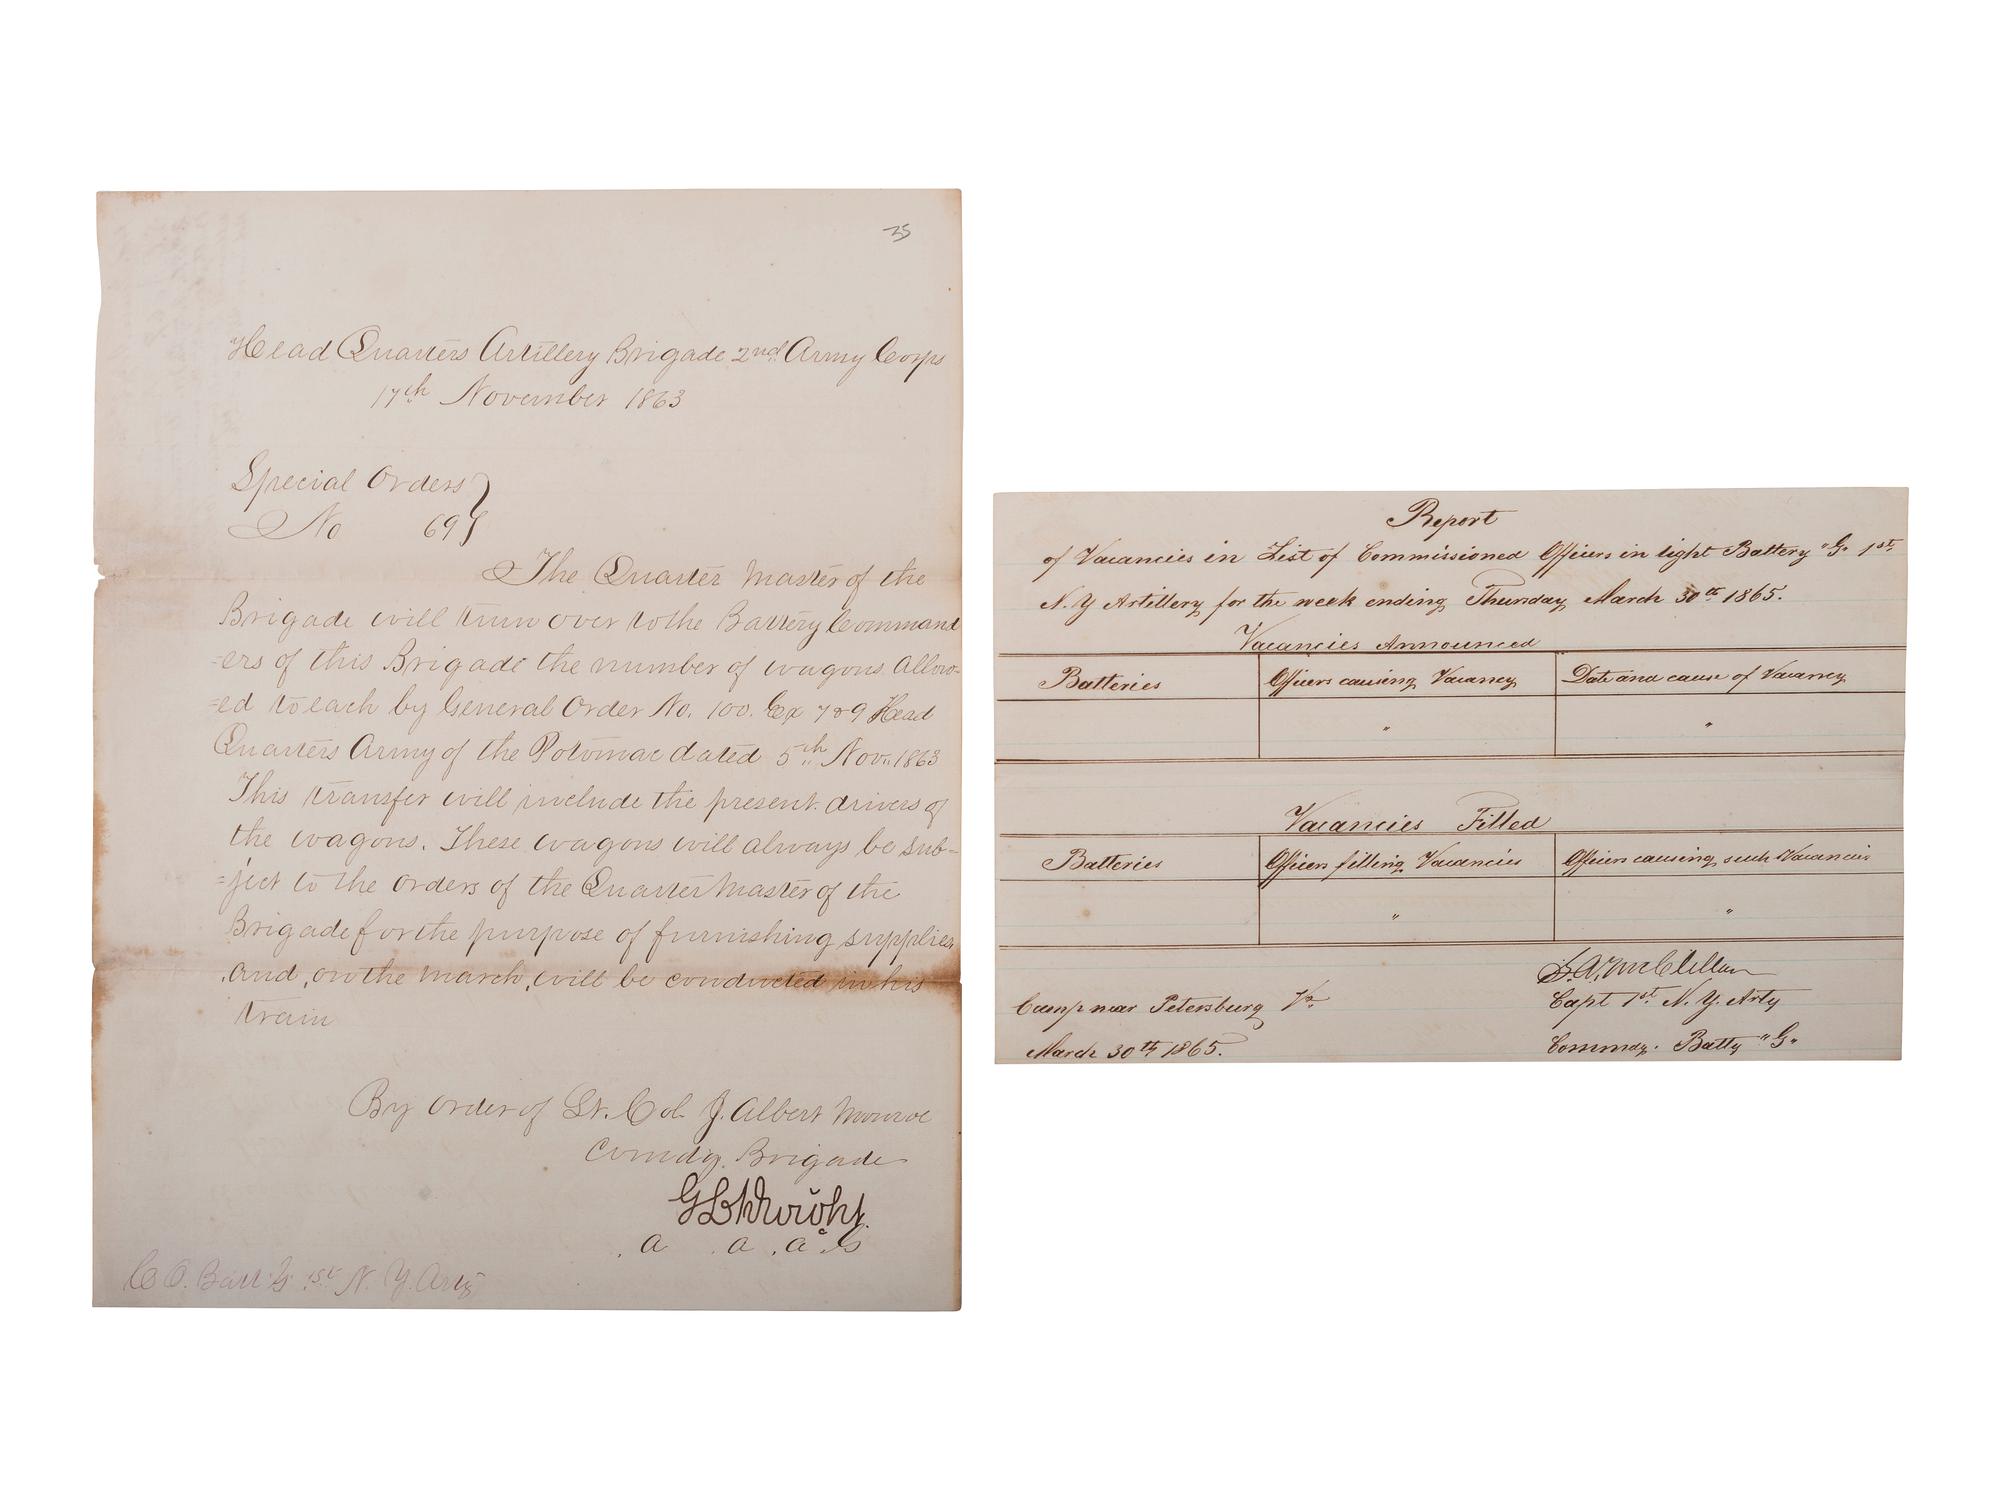 25
Head Quarters Artillery Brigade 2nd Army Corps
17th November 1863
Special Orders
No 69
The Quarter Master of the
Brigade will turn over to the Battery Command
=ers of this Brigade the number of wagons allow-
=ed to each by General Order No. 100. Ex 7 & 9 Head
Quarters Army of the Potomac dated 5th Nov. 1863
This transfer will include the present drivers of
the wagons. These wagons will always be sub-
=ject to the orders of the Quarter Master of the
Brigade for the purpose of furnishing supplies
and, on the march, will be conducted in his
train
By order of Lt. Col. J. Albert Monroe
Comdg. Brigade
A A A G
C O. Batt G 1st N. Y. Arty
Report
of Vacancies in List of Commissioned Officers in light Battery "G" 1st
N. Y Artillery for the week ending Thursday March 30th 1865.
Vacancies Announced
Batteries Officers causing Vacancy Date and cause of Vacancy
" "
Vacancies Filled
Batteries Officers filling Vacancies Officers causing such Vacancies
" "
S. A. McClellan
Camp near Petersburg Va Capt 1st N. Y. Arty
March 30th 1865. Commdg. Batty "G"